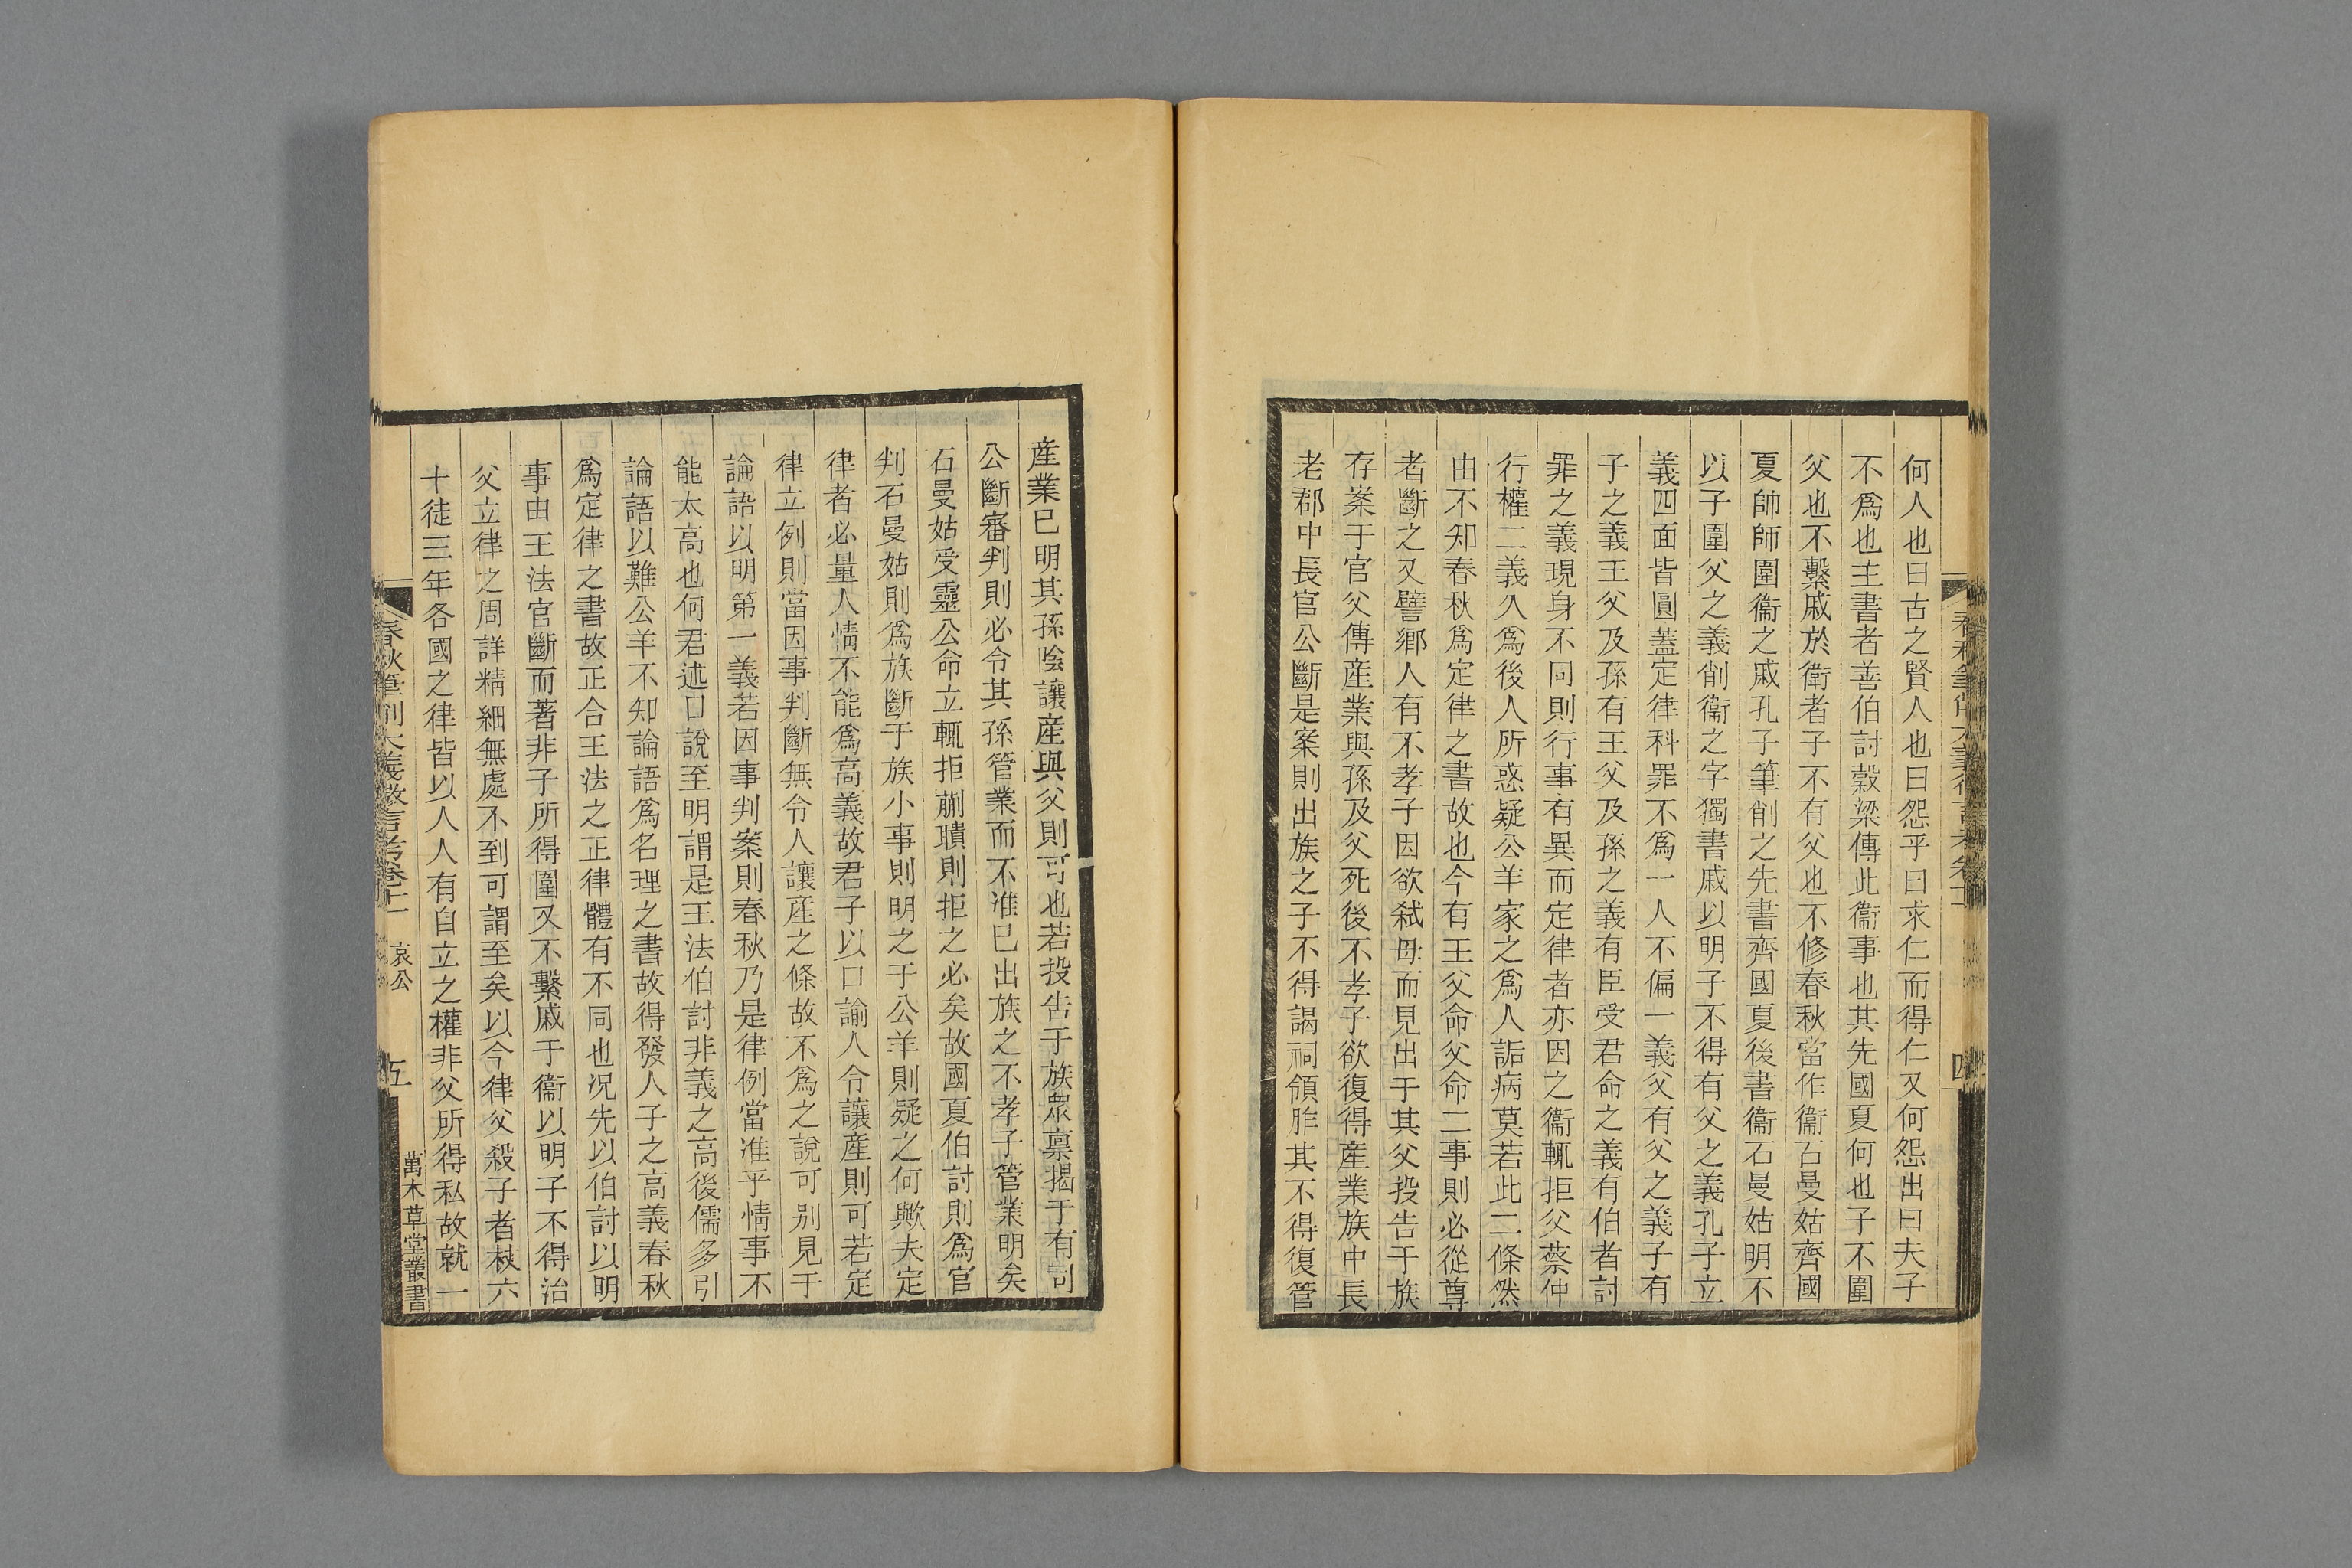 何人也曰古之賢人也曰怨乎曰求仁而得仁又何怨出曰夫子
不爲也主書者善伯討穀梁傳此衞事也其先國夏何也子不圍
父也不繫戚於衞者子不有父也不修春秋當作衞石曼姑齊國
夏帥師圍衞之戚孔子筆削之先書齊國夏後書衞石曼姑明不
以子圍父之義削衞之字獨書戚以明子不得有父之義孔子立
義四面皆圓蓋定律科罪不爲一人不偏一義父有父之義子有
子之義王父及孫有王父及孫之義有臣受君命之義有伯者討
罪之義現身不同則行事有異而定律者亦因之衞輒拒父蔡仲
行權二義久爲後人所惑疑公羊家之爲人詬病莫若此二條然
由不知春秋爲定律之書故也今有王父命父命二事則必從尊
者斷之又譬鄉人有不孝子因欲弑母而見出于其父投告于族
存案于官父傳產業與孫及父死後不孝子欲復得產業族中長
老郡中長官公斷是案則出族之子不得謁祠領胙其不得復管
產業巳明其孫陰讓產與父則可也若投告于族衆稟揭于有司
公斷審判則必令其孫管業而不准巳出族之不孝子管業明矣
石曼姑受靈公命立輒拒蒯聵則拒之必矣故國夏伯討則爲官
判石曼姑則爲族斷于族小事則明之于公羊則疑之何歟夫定
律者必量人情不能爲高義故君子以口諭人令讓產則可若定
律立例則當因事判斷無令人讓產之條故不爲之說可别見于
論語以明第一義若因事判案則春秋乃是律例當准乎情事不
能太高也何君述口說至明謂是王法伯討非義之高後儒多引
論語以難公羊不知論語爲名理之書故得發人子之高義春秋
爲定律之書故正合王法之正律體有不同也况先以伯討以明
事由王法官斷而著非子所得圍又不繫戚于衞以明子不得治
父立律之周詳精細無處不到可謂至矣以今律父殺子者杖六
十徒三年各國之律皆以人人有自立之權非父所得私故就一
春秋筆削大義微言考卷十一 哀公 五 萬木草堂叢書